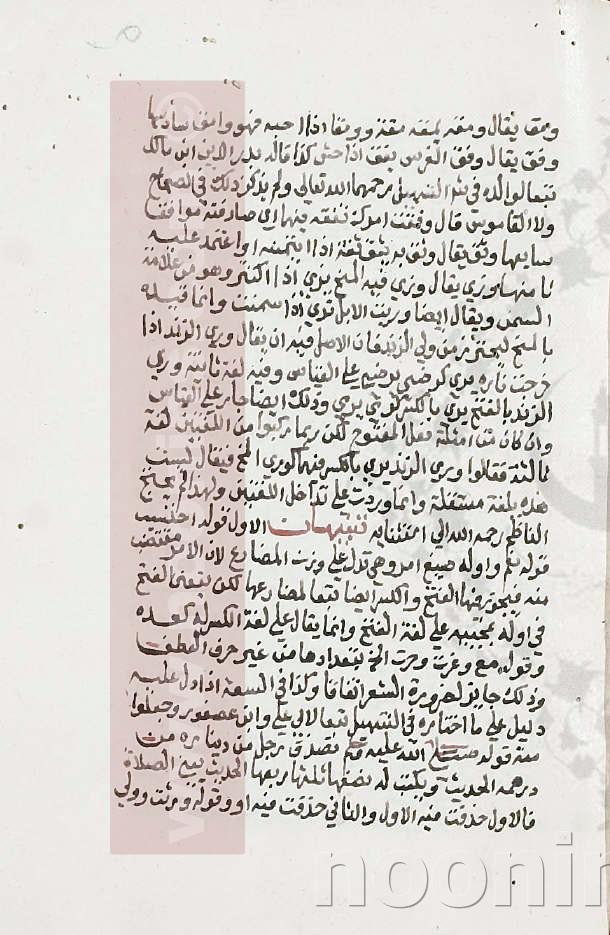 ومق يقال ومقه يمقه مقة وومقا اذا احبه فهو وامق سادسها
وفق يقال وفق الفرس يفق اذا حسن كذا قاله بدر الدين ابن مالك
تبعا لوالده في شرح التسهيل رحمهما الله تعالي ولم يذكر ذلك في الصحاح
ولا القاموس قال وفقت امرك تفقه بينهما اي صادفته موافقا
سابعها وثق يقال وثق به يثق ثقة اذا ائتمنه او اعتمد عليه
ثامنها وري يقال وري فيه المخ يري اذا اكتنز وهو من علامة
السمن ويقال ايضا وريت الابل تري اذا سمنت وانما قيده
بالمخ ليحترز من وري الزند فان الاصل فيه ان يقال وري الزند اذا
خرجت ناره يري كرضي يرضي علي القياس وفيه لغة ثانية وري
الزند بالفتح يري بالكسر كرمي يرمي وذلك ايضا جار علي القياس
وان كان من امثلة فعل المفتوح لكن ربما ركبوا من اللغتين لغة
ثالثة فقالوا وري الزند يري بالكسر فيهما كوري المخ فيقال ليست
هذه بلغة مستقلة وانما وردت علي تداخل اللغتين ولهذا لم يحتج
الناظم رحمه الله الي استثنائه تنبيهات الاول قوله احسب
قوله نعم واوله صيغ امر وهي تدل علي وزن المضارع لان الامر مقتضب
منه فيجوز فيها الفتح والكسر ايضا تبعا لمضارعها لكن يتعين الفتح
في اوله بمجيبه علي لغة الفتح وانما يقال علي لغة الكسر له كعده
وقوله مع وغرت وحرت الخ بتعدادها من غير حرف العطف
وذلك جايز لضرورة الشعر اتفاقا وكذا في السعة اذا دل عليه
دليل علي ما اختاره في التسهيل تبعا لابي علي وابن عصفور وجعلوا
منه قوله صلي الله عليه وسلم تصدق رجل من ديناره من
درهمه الحديث ويكتب له نصفها ثلثها ربعها الحديث بيع الصلاة
فالاول حذفت منه الاول والثاني حذفت منه او وقوله ورثت وولي
noonin